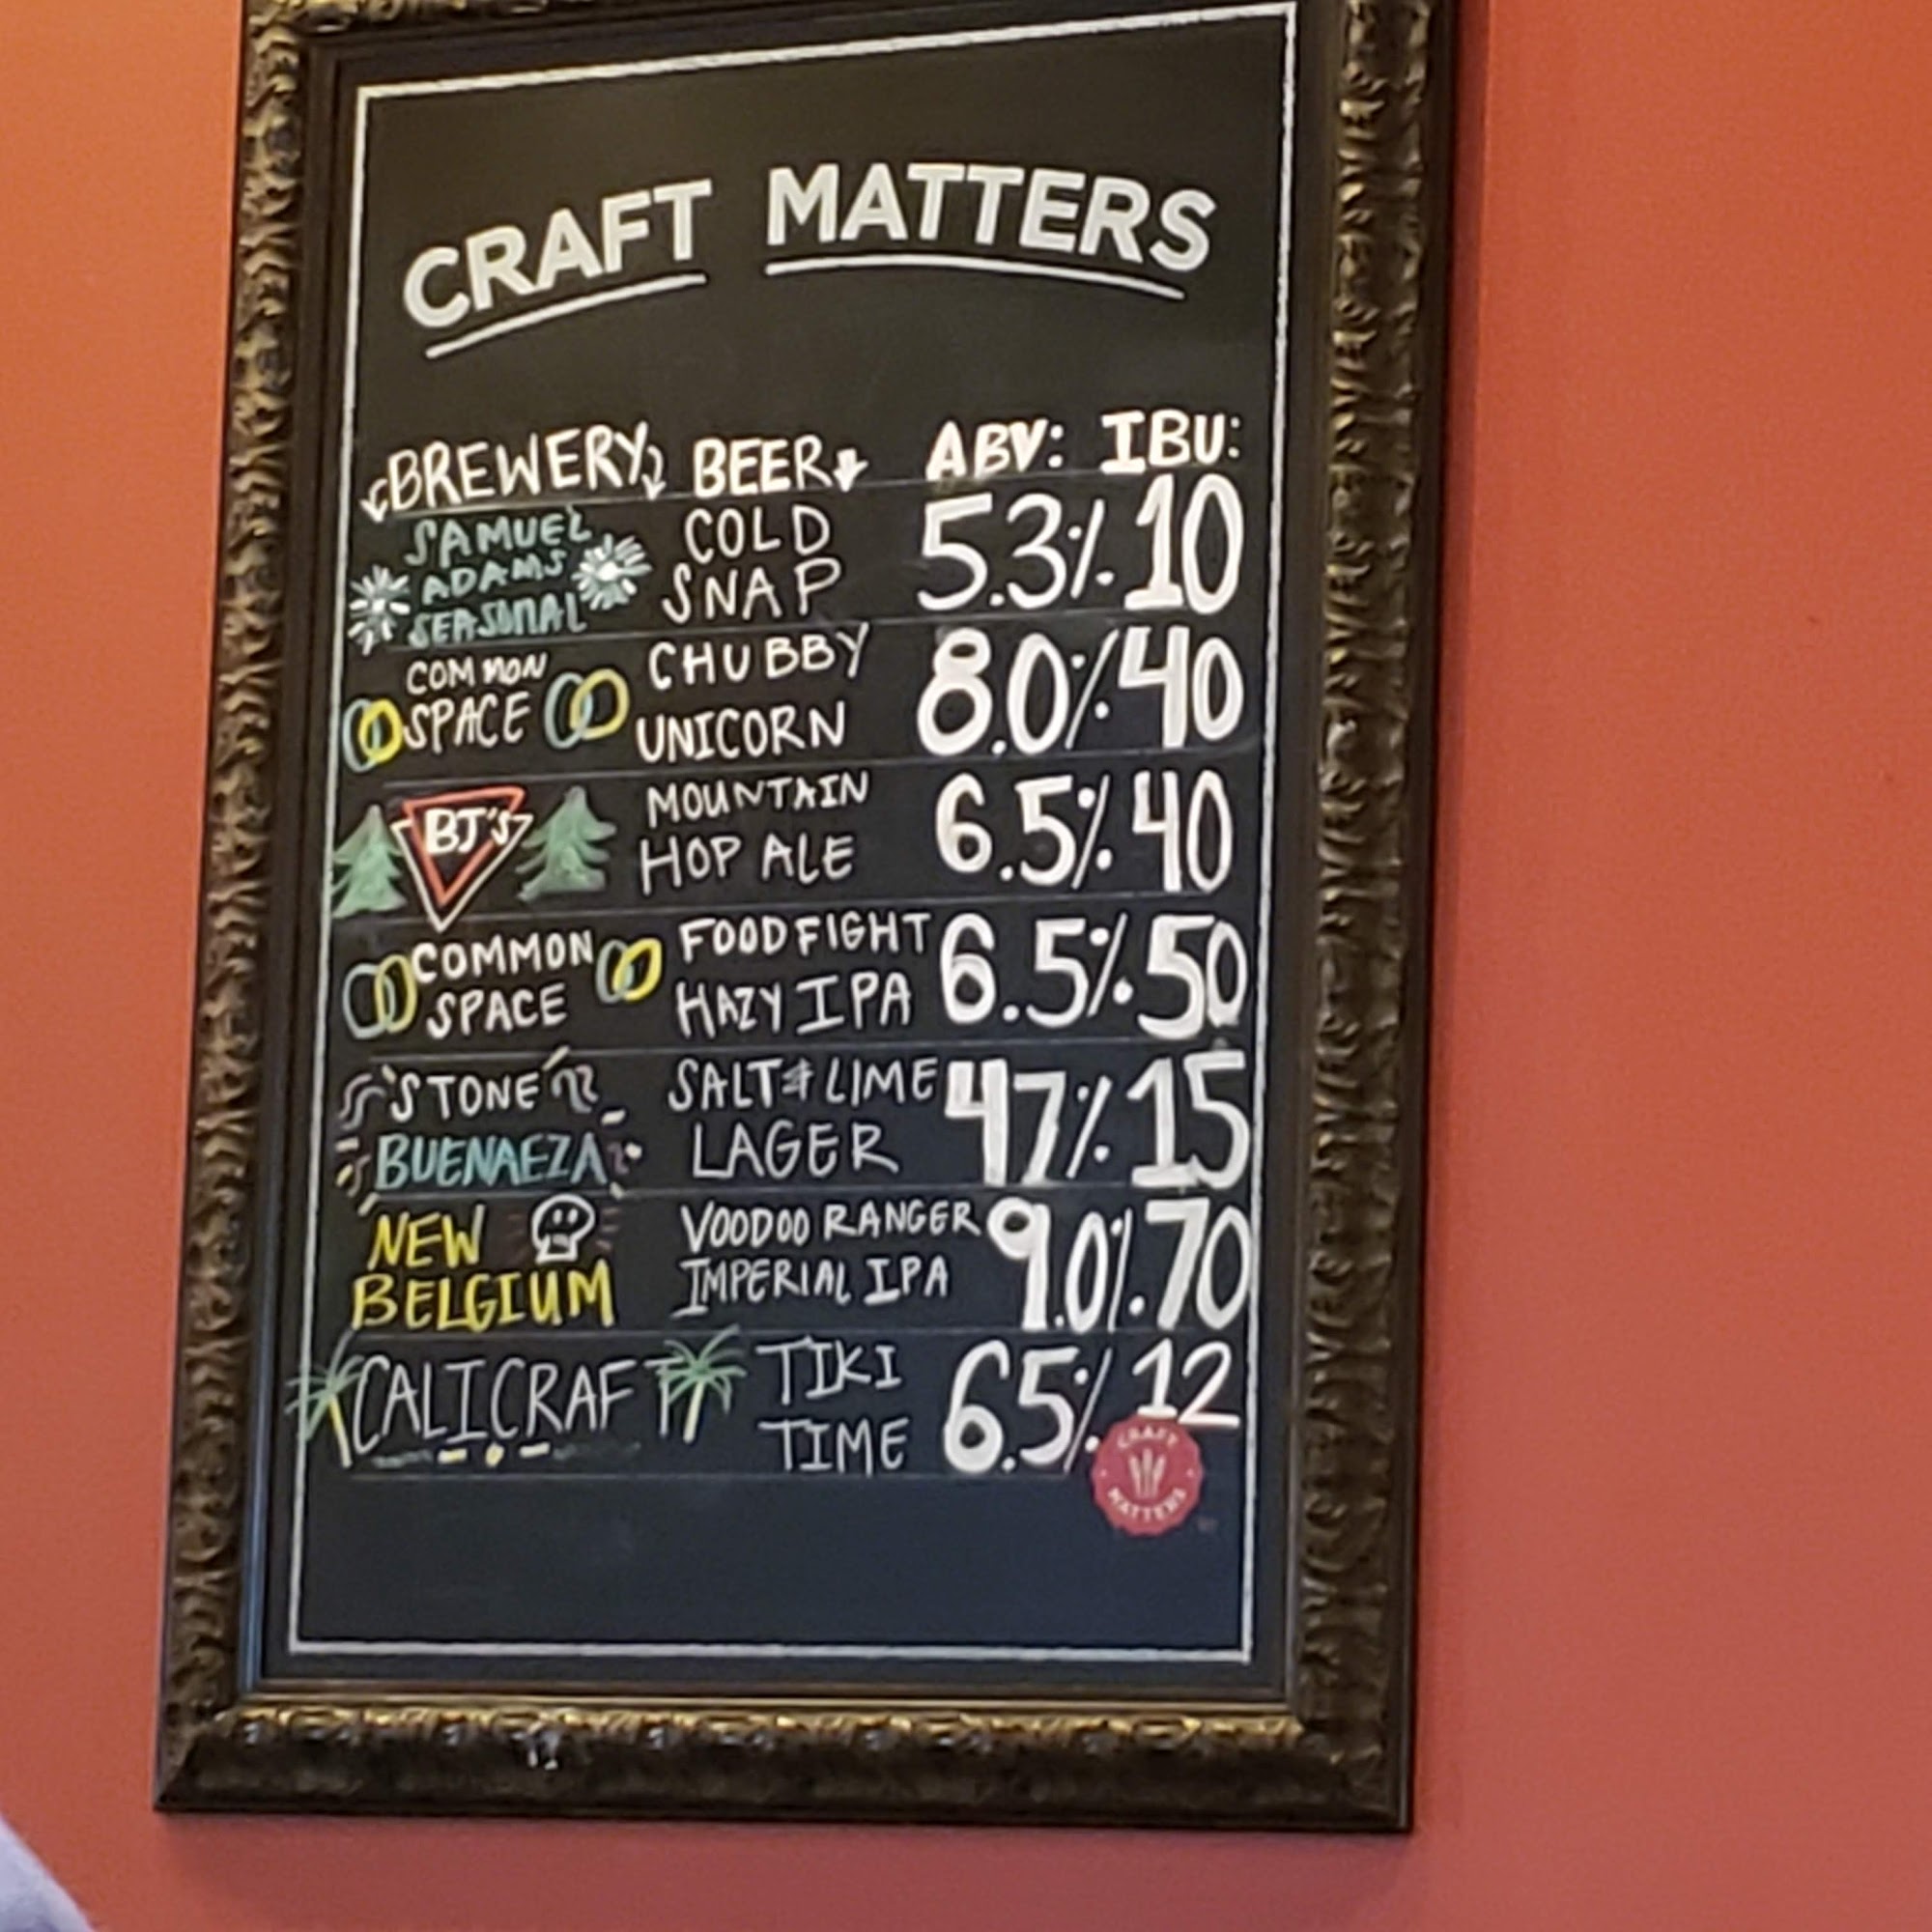 CRAFT MATTERS
BREWERY BEER ABV: IBU:
SAMUEL ADAMS SEASONAL COLD SNAP 5.3% 10
COMMON SPACE CHUBBY UNICORN 8.0% 40
BJ's MOUNTAIN HOP ALE 6.5% 40
COMMON SPACE FOOD FIGHT HAZY IPA 6.5% 50
STONE BUENAEZA SALT & LIME LAGER 47% 15
NEW BELGIUM VOODOO RANGER IMPERIAL IPA 9.0% 70
CALICRAFT TIKI TIME 6.5% 12
CRAFT MATTERS